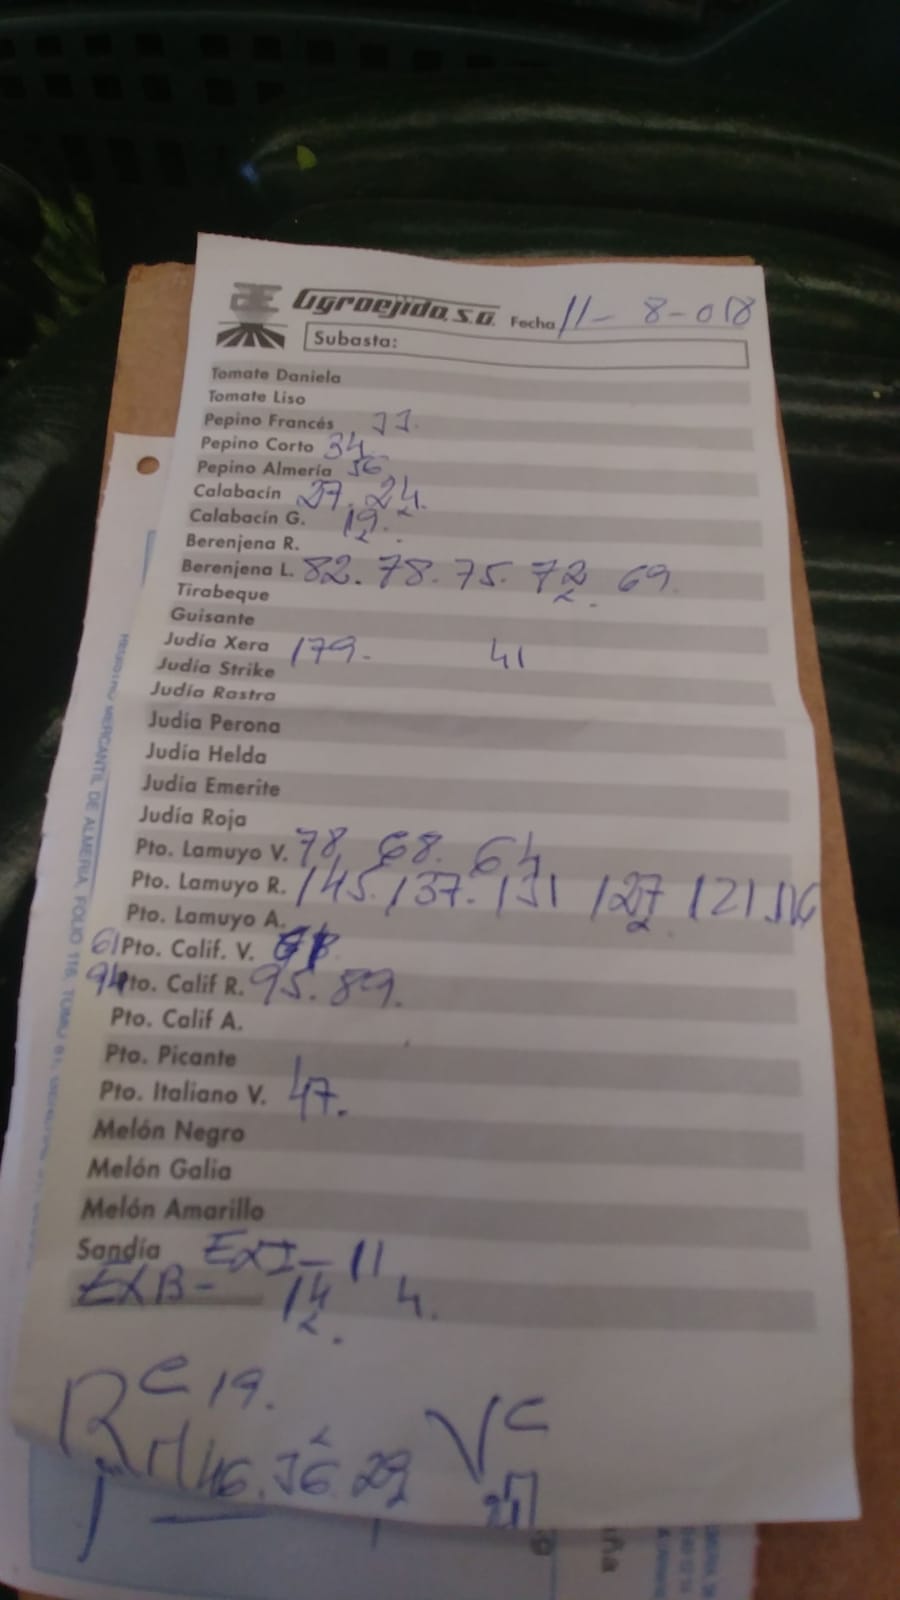 Agroejido, S.A. Fecha 11- 8-018
Subasta:
Tomate Daniela
Tomate Liso
Pepino Francés 33.
Pepino Corto 34
Pepino Almería 36
Calabacín 27. 24.
Calabacín G. 19.
Berenjena R.
Berenjena L. 82. 78. 75. 72. 69.
Tirabeque
Guisante
Judía Xera 179. 41
Judía Strike
Judía Rastra
Judía Perona
Judía Helda
Judía Emerite
Judía Roja
Pto. Lamuyo V. 78. 68. 64
Pto. Lamuyo R. 145. 137. 131 127 121
Pto. Lamuyo A.
61 Pto. Calif. V.
94 Pto. Calif R. 95. 89.
Pto. Calif A.
Pto. Picante
Pto. Italiano V. 47.
Melón Negro
Melón Galia
Melón Amarillo
Sandía EXI- 11
EXB- 14 4.
R C 19.
M 46. 36. 29
V C
MERCANTIL DE ALMERIA, FOLIO 116, TOMO